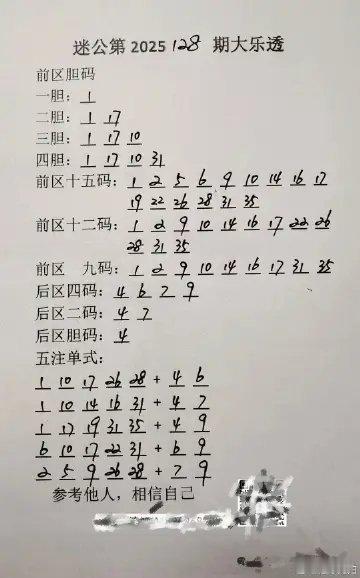 迷公第 2025 128 期大乐透
前区胆码
一胆: 1
二胆: 1 17
三胆: 1 17 10
四胆: 1 17 10 31
前区十五码: 1 2 5 6 9 10 14 16 17
19 22 26 28 31 35
前区十二码: 1 2 9 10 14 16 17 22 26
28 31 35
前区 九码: 1 2 9 10 14 16 17 31 35
后区四码: 4 6 7 9
后区二码: 4 7
后区胆码: 4
五注单式:
1 10 17 26 28 + 4 6
1 10 14 16 31 + 4 7
1 17 19 31 35 + 4 9
6 10 17 22 31 + 6 9
2 5 9 26 28 + 7 9
参考他人，相信自己